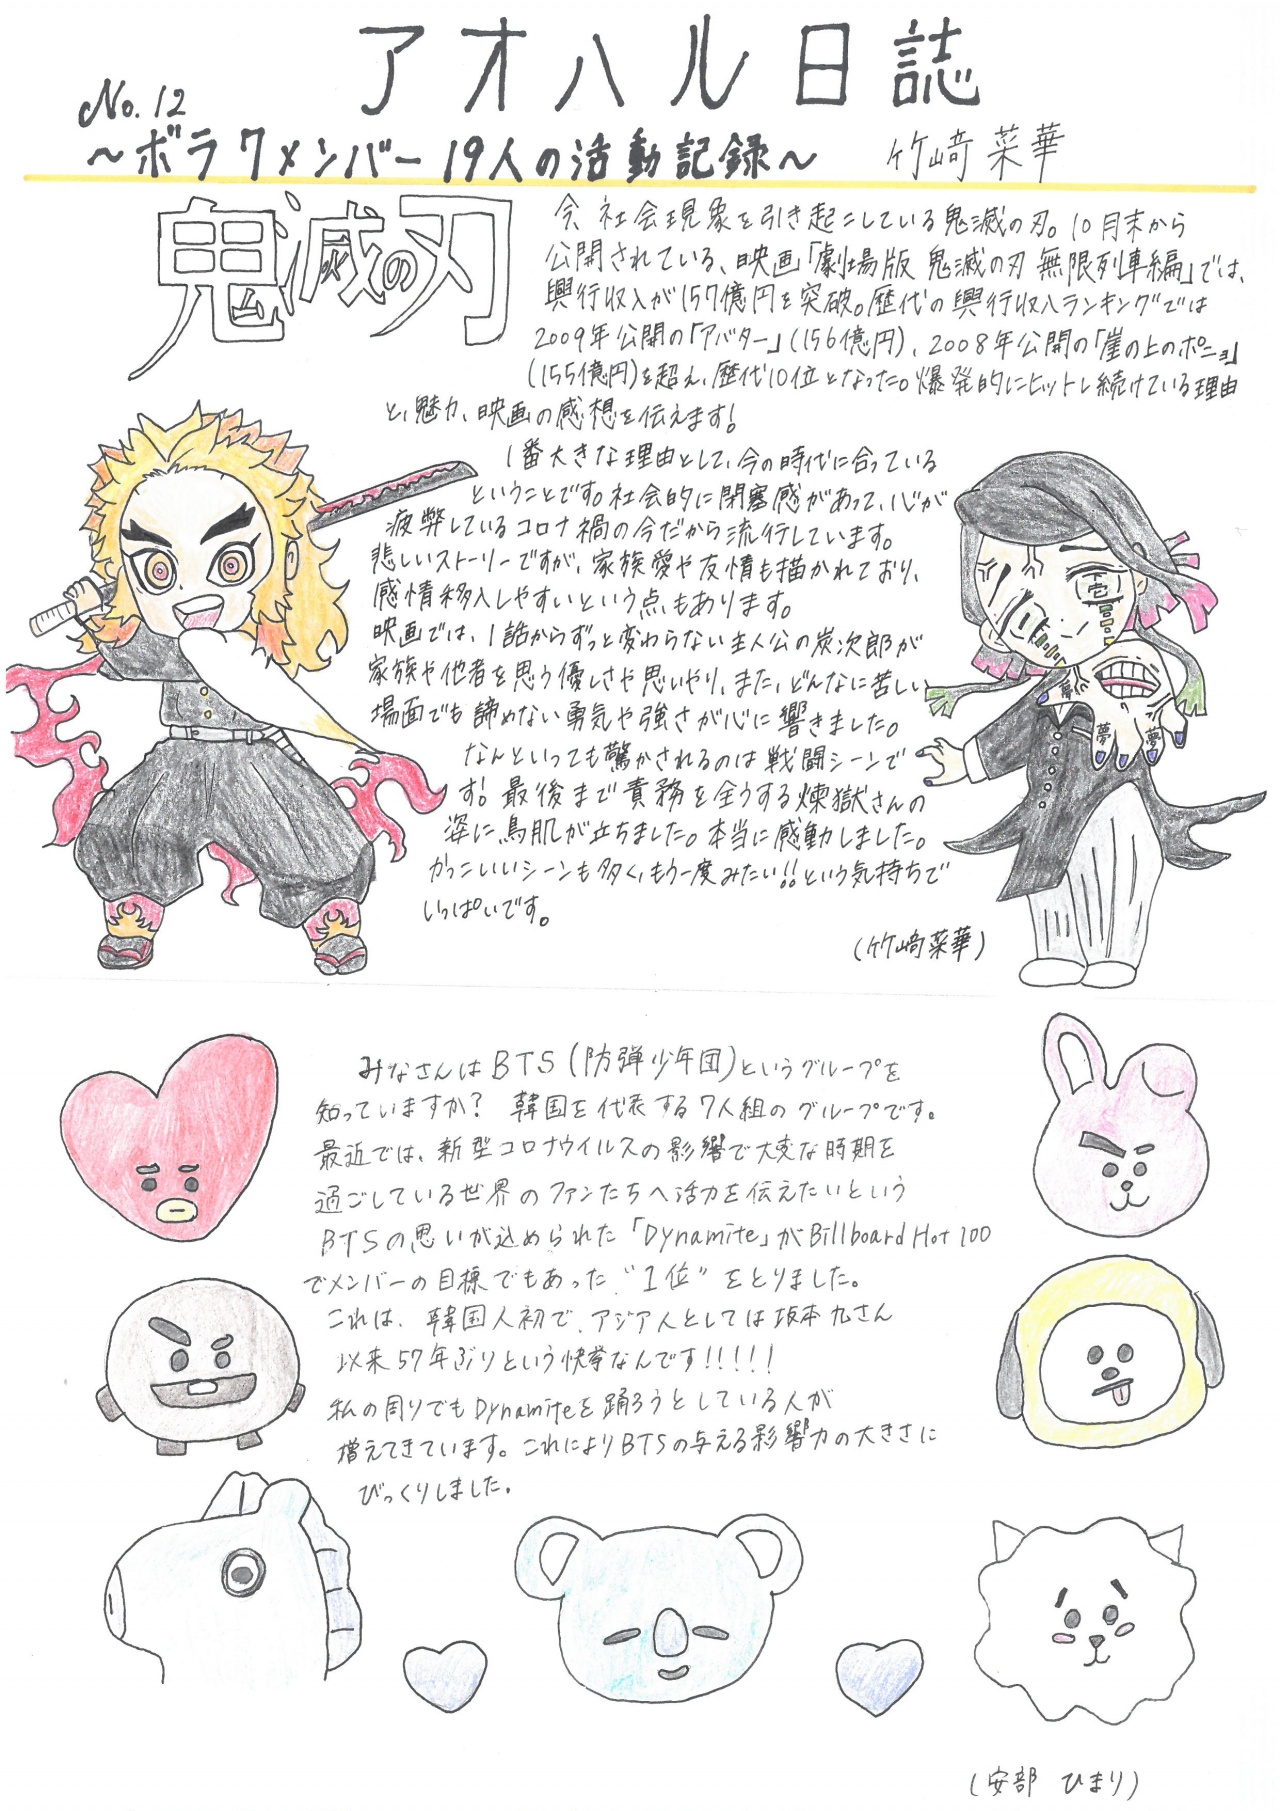 アオハル日誌
No.12
～ボラ7メンバー19人の活動記録～ 竹﨑菜華
鬼滅の刃
今、社会現象を引き起こしている鬼滅の刃。10月末から
公開されている、映画「劇場版 鬼滅の刃 無限列車編」では、
興行収入が157億円を突破。歴代の興行収入ランキングでは
2009年公開の「アバター」(156億円)、2008年公開の「崖の上のポニョ」
(155億円)を超え、歴代10位となった。爆発的にヒットし続けている理由
と、魅力、映画の感想を伝えます！
1番大きな理由として、今の時代に合っている
ということです。社会的に閉塞感があって、心が
疲弊しているコロナ禍の今だから流行しています。
悲しいストーリーですが、家族愛や友情も描かれており、
感情移入しやすいという点もあります。
映画では、1話からずっと変わらない主人公の炭次郎が
家族や他者を思う優しさや思いやり、また、どんなに苦しい
場面でも諦めない勇気や強さが心に響きました。
なんといっても驚かされるのは戦闘シーンで
す！最後まで責務を全うする煉獄さんの
姿に鳥肌が立ちました。本当に感動しました。
かっこいいシーンも多く、もう一度みたい!!という気持ちで
いっぱいです。
(竹﨑菜華)
壱
夢
夢
夢
みなさんはBTS(防弾少年団)というグループを
知っていますか？ 韓国を代表する7人組のグループです。
最近では、新型コロナウイルスの影響で大変な時期を
過ごしている世界のファンたちへ活力を伝えたいという
BTSの思いが込められた「Dynamite」がBillboard Hot 100
でメンバーの目標でもあった"1位"をとりました。
これは、韓国人初で、アジア人としては坂本九さん
以来57年ぶりという快挙なんです!!!!!
私の周りでもDynamiteを踊ろうとしている人が
増えてきています。これによりBTSの与える影響力の大きさに
びっくりしました。
(安部 ひまり)